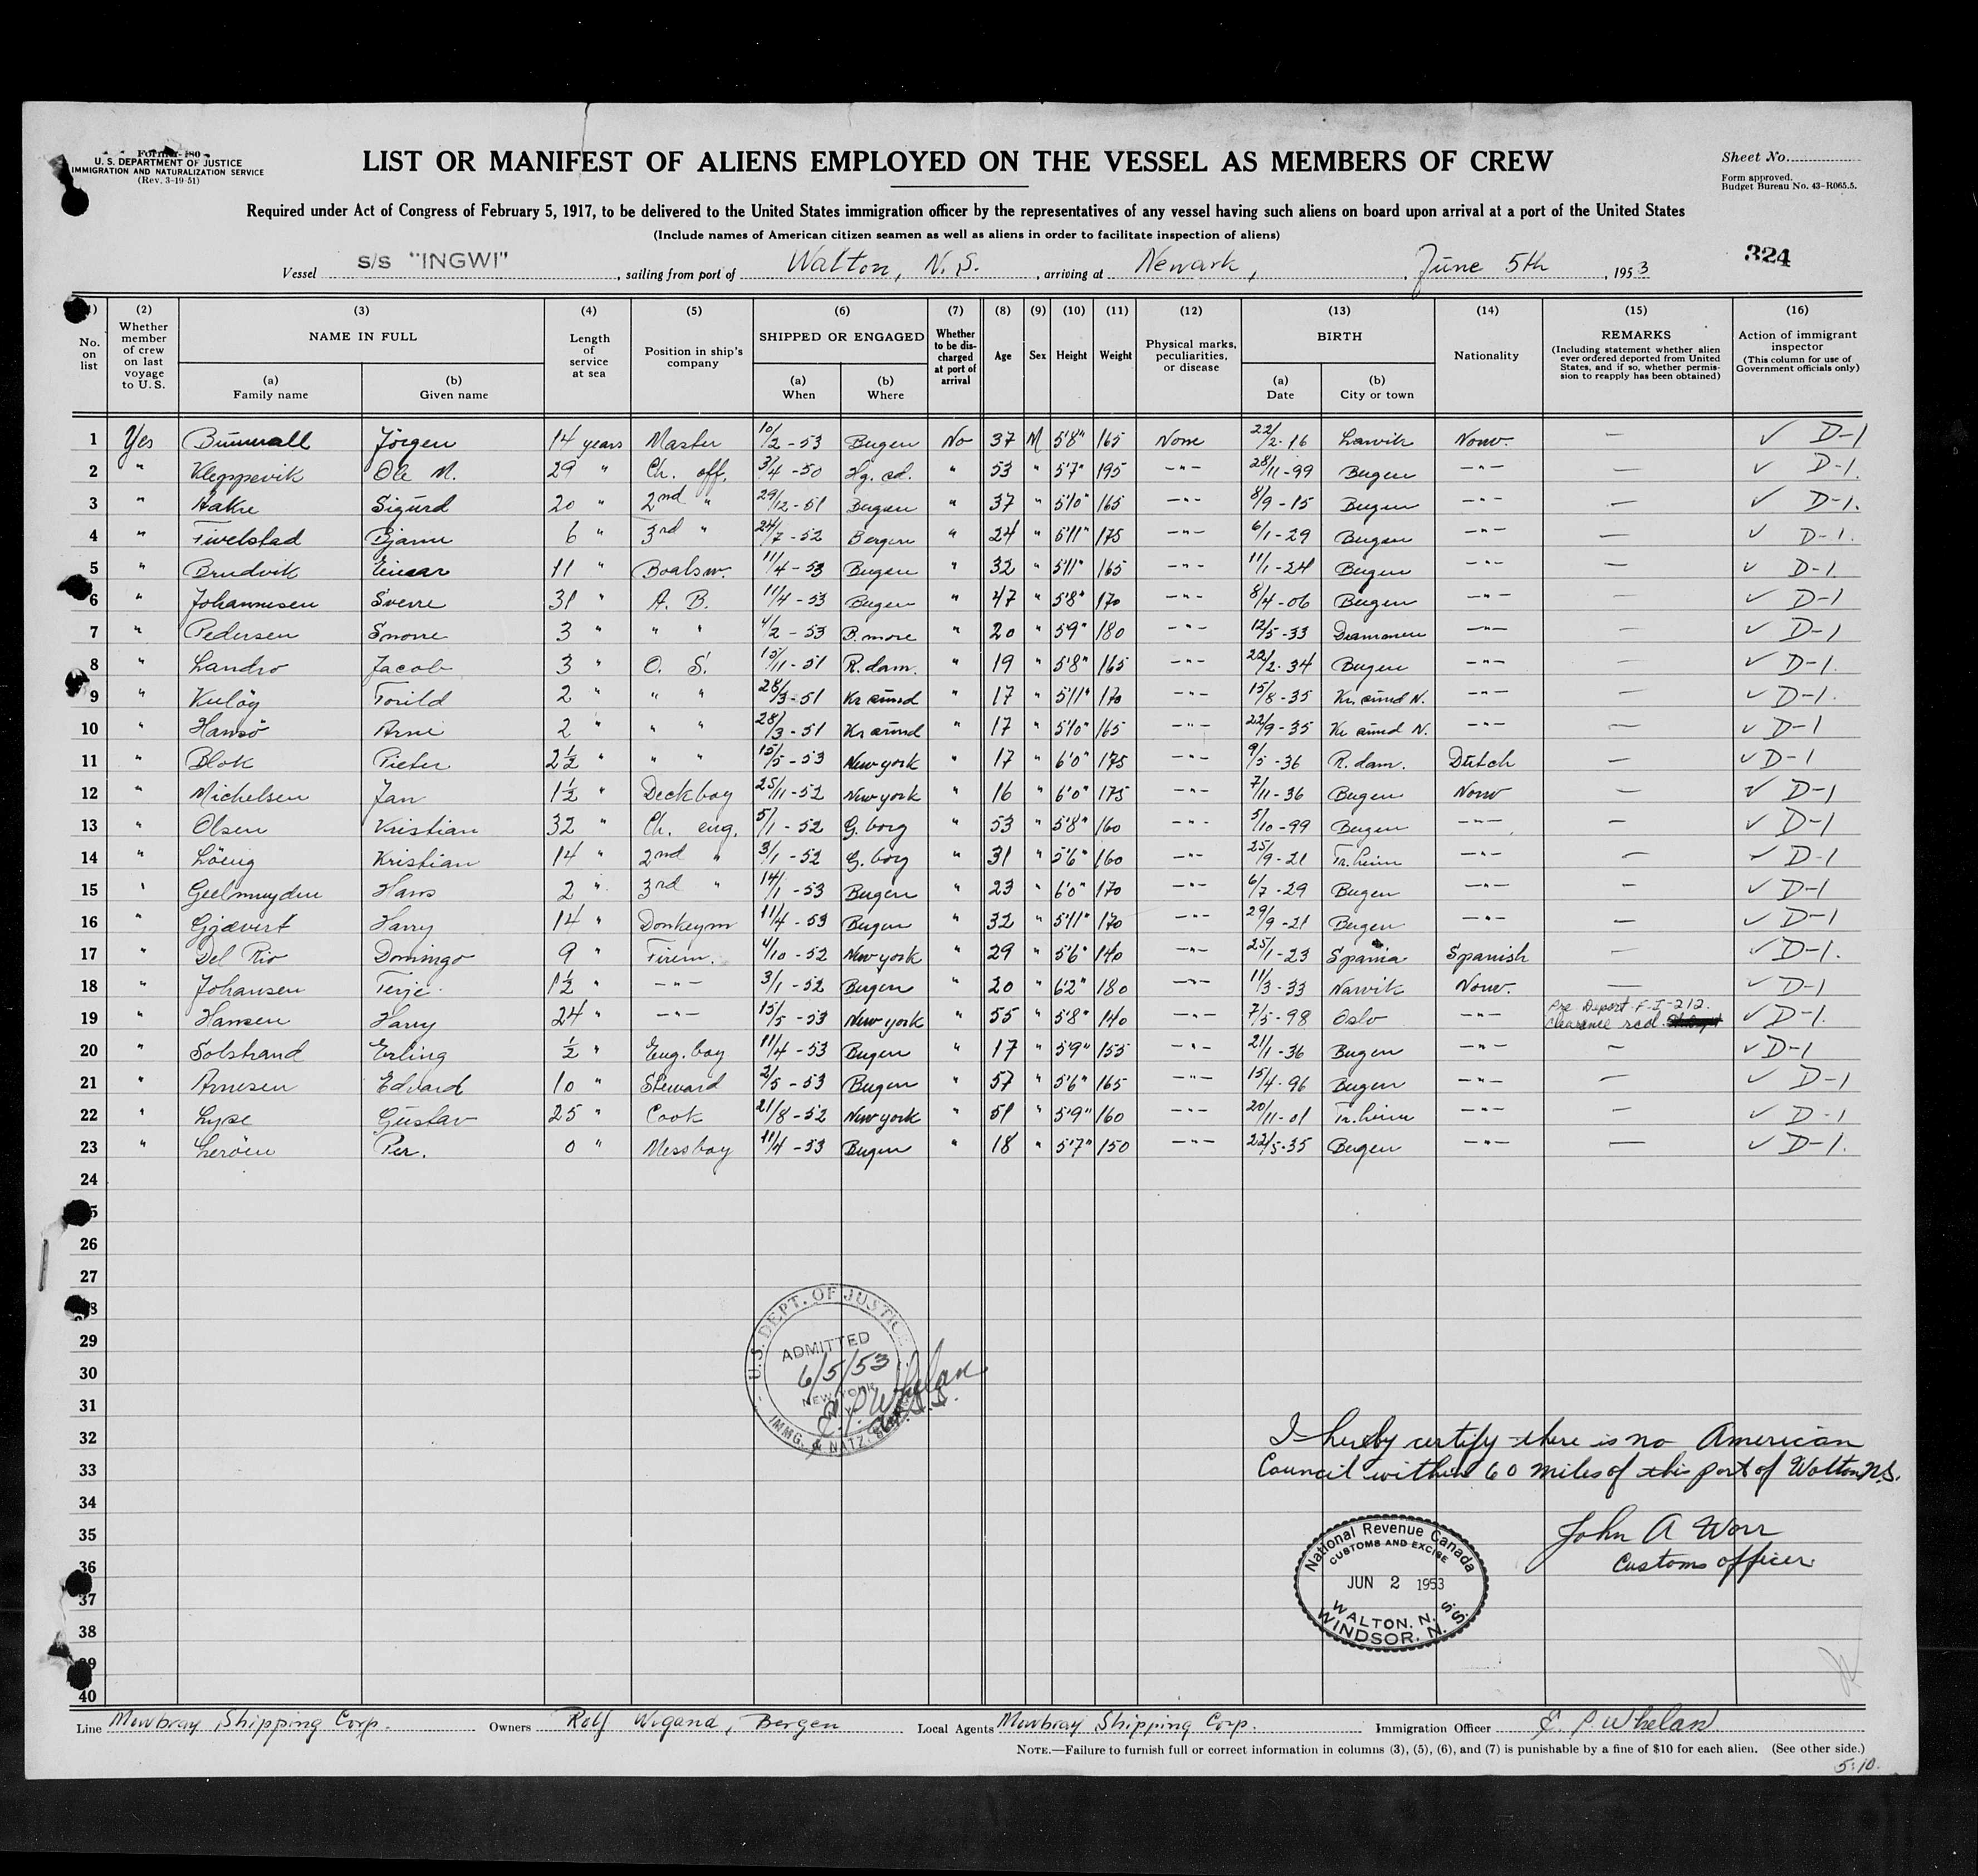 Form I-480
U. S. DEPARTMENT OF JUSTICE
IMMIGRATION AND NATURALIZATION SERVICE
(Rev. 3-19-51)
LIST OR MANIFEST OF ALIENS EMPLOYED ON THE VESSEL AS MEMBERS OF CREW
Sheet No.
Form approved.
Budget Bureau No. 43-R065.5.
Required under Act of Congress of February 5, 1917, to be delivered to the United States immigration officer by the representatives of any vessel having such aliens on board upon arrival at a port of the United States
(Include names of American citizen seamen as well as aliens in order to facilitate inspection of aliens)
324
Vessel S/S "INGWI", sailing from port of Walton, N.S., arriving at Newark, June 5th, 1953
(1) (2) (3) (4) (5) (6) (7) (8) (9) (10) (11) (12) (13) (14) (15) (16)
No. on list
Whether member of crew on last voyage to U. S.
NAME IN FULL
(a) Family name
(b) Given name
Length of service at sea
Position in ship's company
SHIPPED OR ENGAGED
(a) When
(b) Where
Whether to be discharged at port of arrival
Age
Sex
Height
Weight
Physical marks, peculiarities, or disease
BIRTH
(a) Date
(b) City or town
Nationality
REMARKS
(Including statement whether alien ever ordered deported from United States, and if so, whether permission to reapply has been obtained)
Action of immigrant inspector
(This column for use of Government officials only)
1 Yes Jörgen 14 years Master 10/2 - 53 Bergen No 37 M 5'8" 165 None 22/2-16 Larvik Norw. — ✓ D-1
2 " Kleppevik Ole M. 29 " Ch. off. 3/4 - 50 " 53 " 5'7" 195 -"- 28/11-99 Bergen -"- — ✓ D-1.
3 " Aakre Sigurd 20 " 2nd " 29/12-51 Bergen " 37 " 5'10" 165 -"- 8/9-15 Bergen -"- — ✓ D-1.
4 " Tivelstad Bjarne 6 " 3rd " 24/7-52 Bergen " 24 " 5'11" 175 -"- 6/1-29 Bergen -"- — ✓ D-1.
5 " Brudvik Einar 11 " Boatsw. 11/4-53 Bergen " 32 " 5'11" 165 -"- 11/1-21 Bergen -"- — ✓ D-1
6 " Johannesen Sverre 31 " A. B. 11/4-53 Bergen " 47 " 5'8" 170 -"- 8/4-06 Bergen -"- — ✓ D-1
7 " Pedersen Snorre 3 " " " 4/2-53 B.more " 20 " 5'9" 180 -"- 12/5-33 Drammen -"- — ✓ D-1
8 " Landro Jacob 3 " O. S. 15/11-51 R.dam. " 19 " 5'8" 165 -"- 22/2-34 Bergen -"- — ✓ D-1.
9 " Kulöy Torild 2 " " " 28/3-51 Kr.sund " 17 " 5'11" 170 -"- 15/8-35 Kr.sund N. -"- — ✓ D-1.
10 " Hansö Arne 2 " " " 28/3-51 Kr.sund " 17 " 5'10" 165 -"- 22/9-35 Kr.sund N. -"- — ✓ D-1
11 " Blok Pieter 2½ " " " 15/5-53 New york " 17 " 6'0" 175 -"- 9/5-36 R.dam. Dutch — ✓ D-1
12 " Michelsen Jan 1½ " Deckboy 25/11-52 New york " 16 " 6'0" 175 -"- 7/11-36 Bergen Norw — ✓ D-1
13 " Olsen Kristian 32 " Ch. eng. 5/1-52 G.borg " 53 " 5'8" 160 -"- 5/10-99 Bergen -"- — ✓ D-1
14 " Löeng Kristian 14 " 2nd " 3/1-52 G.borg " 31 " 5'6" 160 -"- 25/9-21 Tr.heim -"- — ✓ D-1
15 " Geelmuyden Hans 2 " 3rd " 14/1-53 Bergen " 23 " 6'0" 170 -"- 6/7-29 Bergen -"- — ✓ D-1
16 " Gjævert Harry 14 " Donkeym 11/4-53 Bergen " 32 " 5'11" 170 -"- 29/9-21 Bergen -"- — ✓ D-1
17 " Del Rio Domingo 9 " Firem. 4/10-52 New york " 29 " 5'6" 140 -"- 25/1-23 Spania Spanish — ✓ D-1.
18 " Johansen Terje. 1½ " -"- 3/1-52 Bergen " 20 " 6'2" 180 -"- 11/3-33 Narvik Norw. — ✓ D-1
19 " Hansen Harry 24 " -"- 15/5-53 New york " 55 " 5'8" 140 -"- 7/5-98 Oslo -"- Pre Deport-F-I-212. Clearance recd. ✓ D-1.
20 " Solstrand Erling ½ " Eng. boy 11/4-53 Bergen " 17 " 5'9" 155 -"- 21/1-36 Bergen -"- — ✓ D-1
21 " Arnesen Edvard 10 " Steward 2/5-53 Bergen " 57 " 5'6" 165 -"- 15/4-96 Bergen -"- — ✓ D-1
22 " Lyse Gustav 25 " Cook 21/8-52 New york " 51 " 5'9" 160 -"- 20/11-01 Tr.heim -"- — ✓ D-1
23 " Leröen Per. 0 " Messboy 11/4-53 Bergen " 18 " 5'7" 150 -"- 22/5-35 Bergen -"- — ✓ D-1.
24
26
27
29
30
31
32
33
34
35
36
37
38
39
40
U.S. DEPT. OF JUSTICE
ADMITTED
6/5/53
NEW YORK
IMMG. & NATZ.
E. P. Whelan
I hereby certify there is no American
Council within 60 miles of this port of Walton N.S.
John A Worr
Customs officer
National Revenue Canada
CUSTOMS AND EXCISE
JUN 2 1953
WALTON, N. S.
WINDSOR, N. S.
Line Mowbray Shipping Corp. Owners Rolf Wigand, Bergen Local Agents Mowbray Shipping Corp. Immigration Officer E. P. Whelan
NOTE.—Failure to furnish full or correct information in columns (3), (5), (6), and (7) is punishable by a fine of $10 for each alien. (See other side.)
5:10.